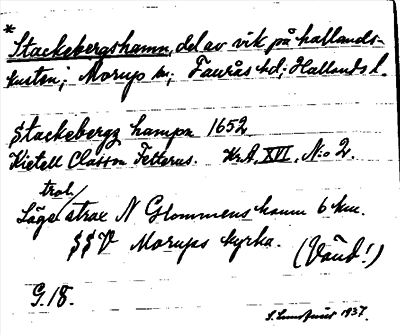 * Stackebergshamn, del av vik på hallands-
kusten; Morup sn; Faurås hd; Hallands l.
Stackebergz hampn 1652
Kietell Classon Felterus. KrA, XVI, N:o 2.
trol.
Låge strax N Glommens hamn 6 km.
SSV Morups kyrka. (Vänd!)
G. 18.
1937.